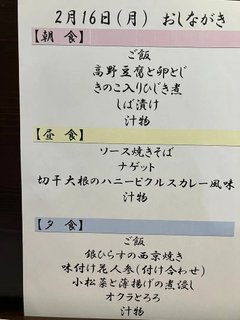 2月16日(月) おしながき
【朝 食】
ご飯
高野豆腐と卵とじ
きのこ入りひじき煮
しば漬け
汁物
【昼 食】
ソース焼きそば
ナゲット
切干大根のハニーピクルスカレー風味
汁物
【夕 食】
ご飯
銀ひらすの西京焼き
味付け花人参(付け合わせ)
小松菜と薄揚げの煮浸し
オクラとろろ
汁物